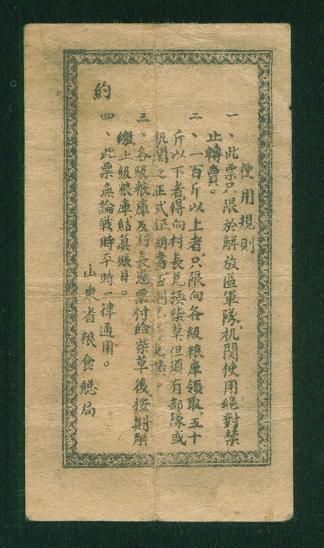 使用規則
一、此票只限於解放區軍隊、机関使用絕對禁
止轉賣。
二、一百斤以上者、只限向各級糧庫領取、五十
斤以下者得向村長兌換柴草但須有部隊或
机関之正式証明書否則
三、各級糧庫及村長憑票付給柴草後按期
繳上級糧庫結算賬目。
四、此票無論戰時平時一律適用。
山東省糧食總局
約